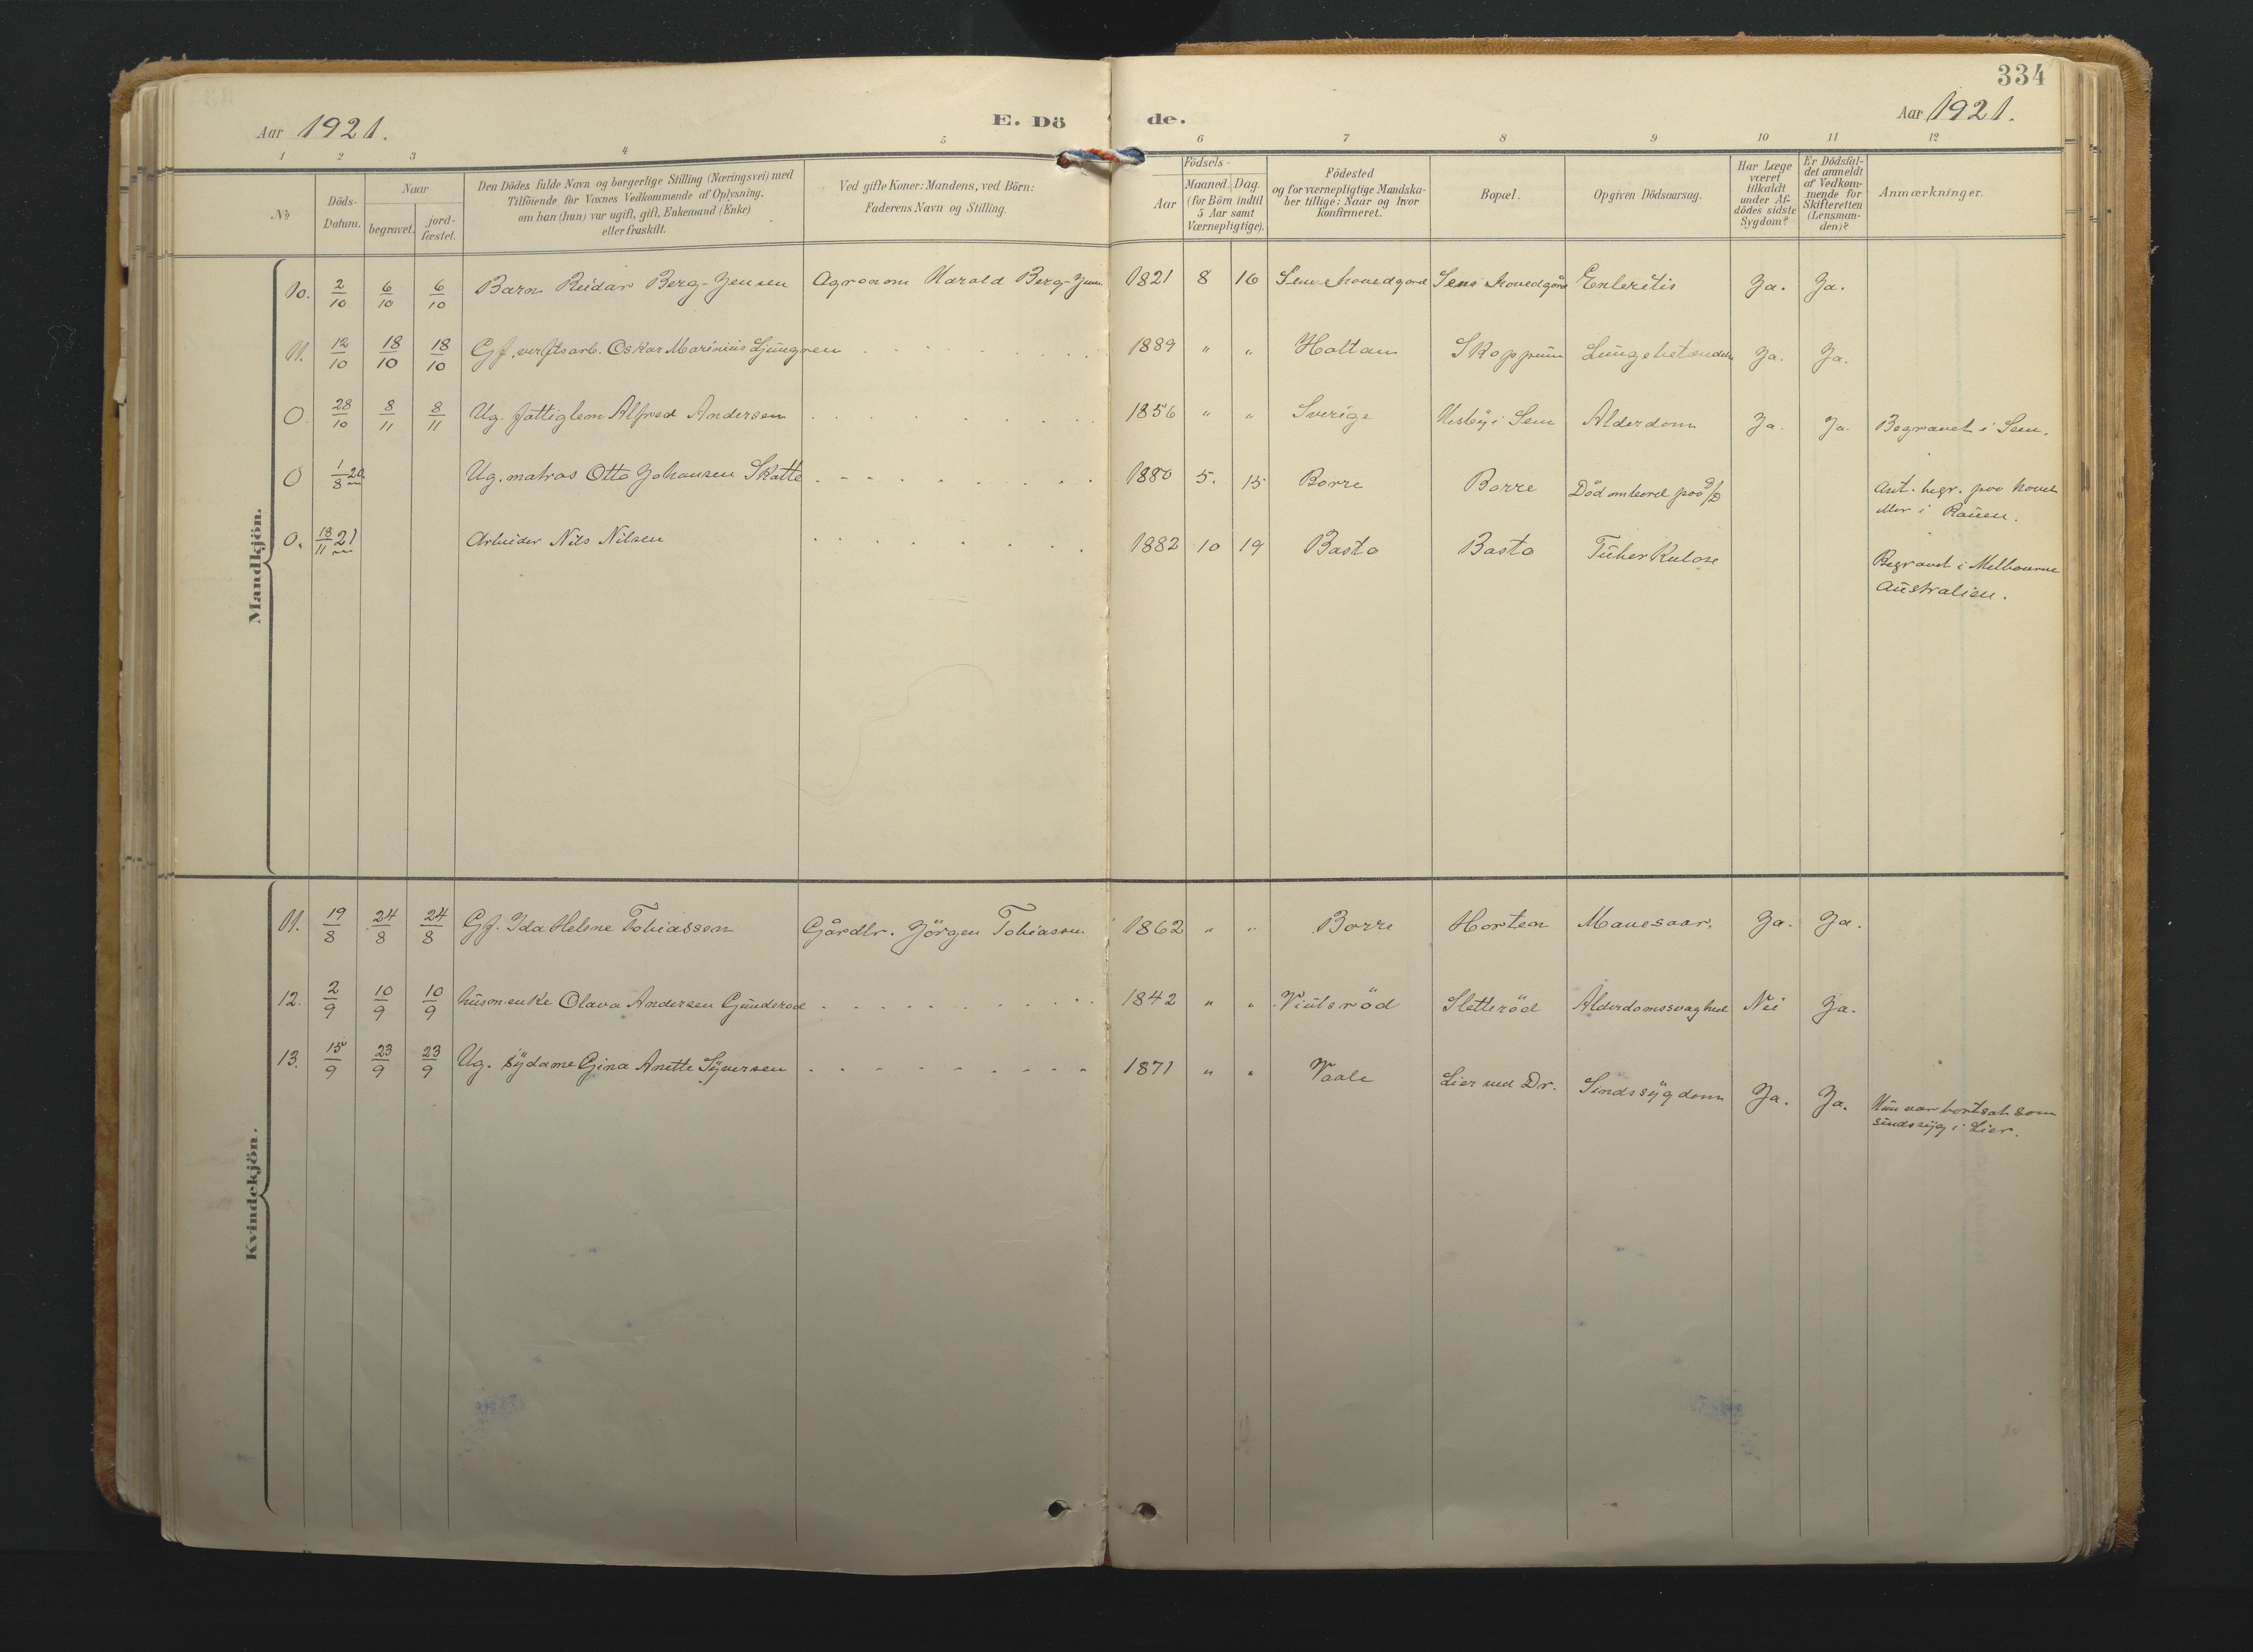 334
Aar 1921.
E. Dö de.
Aar 1921.
1 2 3 4 5 6 7 8 9 10 11 12
No
Döds-
Datum.
Naar
begravet.
jord-
fæstet.
Den Dödes fulde Navn og borgerlige Stilling (Næringsvei) med
Tilföiende for Voxnes Vedkommende af Oplysning,
om han (hun) var ugift, gift, Enkemand (Enke)
eller fraskilt.
Ved gifte Koner: Mandens, ved Börn:
Faderens Navn og Stilling.
Födsels-
Aar
Maaned. Dag.
(for Börn indtil
5 Aar samt
Værnepligtige).
Födested
og for værnepligtige Mandska-
ber tillige: Naar og hvor
konfirmeret.
Bopæl.
Opgiven Dödsaarsag.
Har Læge
været
tilkaldt
under Af-
dödes sidste
Sygdom?
Er Dödsfal-
det anmeldt
af Vedkom-
mende for
Skifteretten
(Lensman-
den)?
Anmærkninger.
Mandkjön.
10. 2/10 6/10 6/10 Barn Reidar Berg-Jensen Agronom Harald Berg-Jens. 1821 8 16 Sem hovedgard Sem hovedgård Enteritis Ja. Ja.
11. 12/10 18/10 18/10 Gf. verftsarb. Oskar Marinius Ljungren 1889 " " Holtan Skoppum Lungebetændelse Ja. Ja.
0. 28/10 8/11 8/11 Ug. fattiglem Alfred Andersen 1856 " " Sverige i Sem Alderdom Ja. Ja. Begravet i Sem.
0 1/8 20 Ug. matros Otto Johansen Skatte 1880 5. 15 Borre Borre Död ombord paa D/S Ant. begr. paa havet
eller i Rouen.
0. 13/11 21 Arbeider Nils Nilsen 1882 10 19 Basto Basto Tuberkulose Begravet i Melbourne
Australien.
Kvindekjön.
11. 19/8 24/8 24/8 Gf. Ida Helene Tobiassen Gårdbr. Jörgen Tobiassen 1862 " " Borre Horten Mavesaar. Ja. Ja.
12. 2/9 10/9 10/9 husm.enke Olava Andersen Gunderöd 1842 " " Viulsröd Sletteröd Alderdomssvaghed Nei Ja.
13. 15/9 23/9 23/9 Ug. sydame Gina Anette Syversen 1871 " " Vaale Lier ved Dr. Sindssygdom Ja. Ja. Hun var bortsat som
sindssyg i Lier.